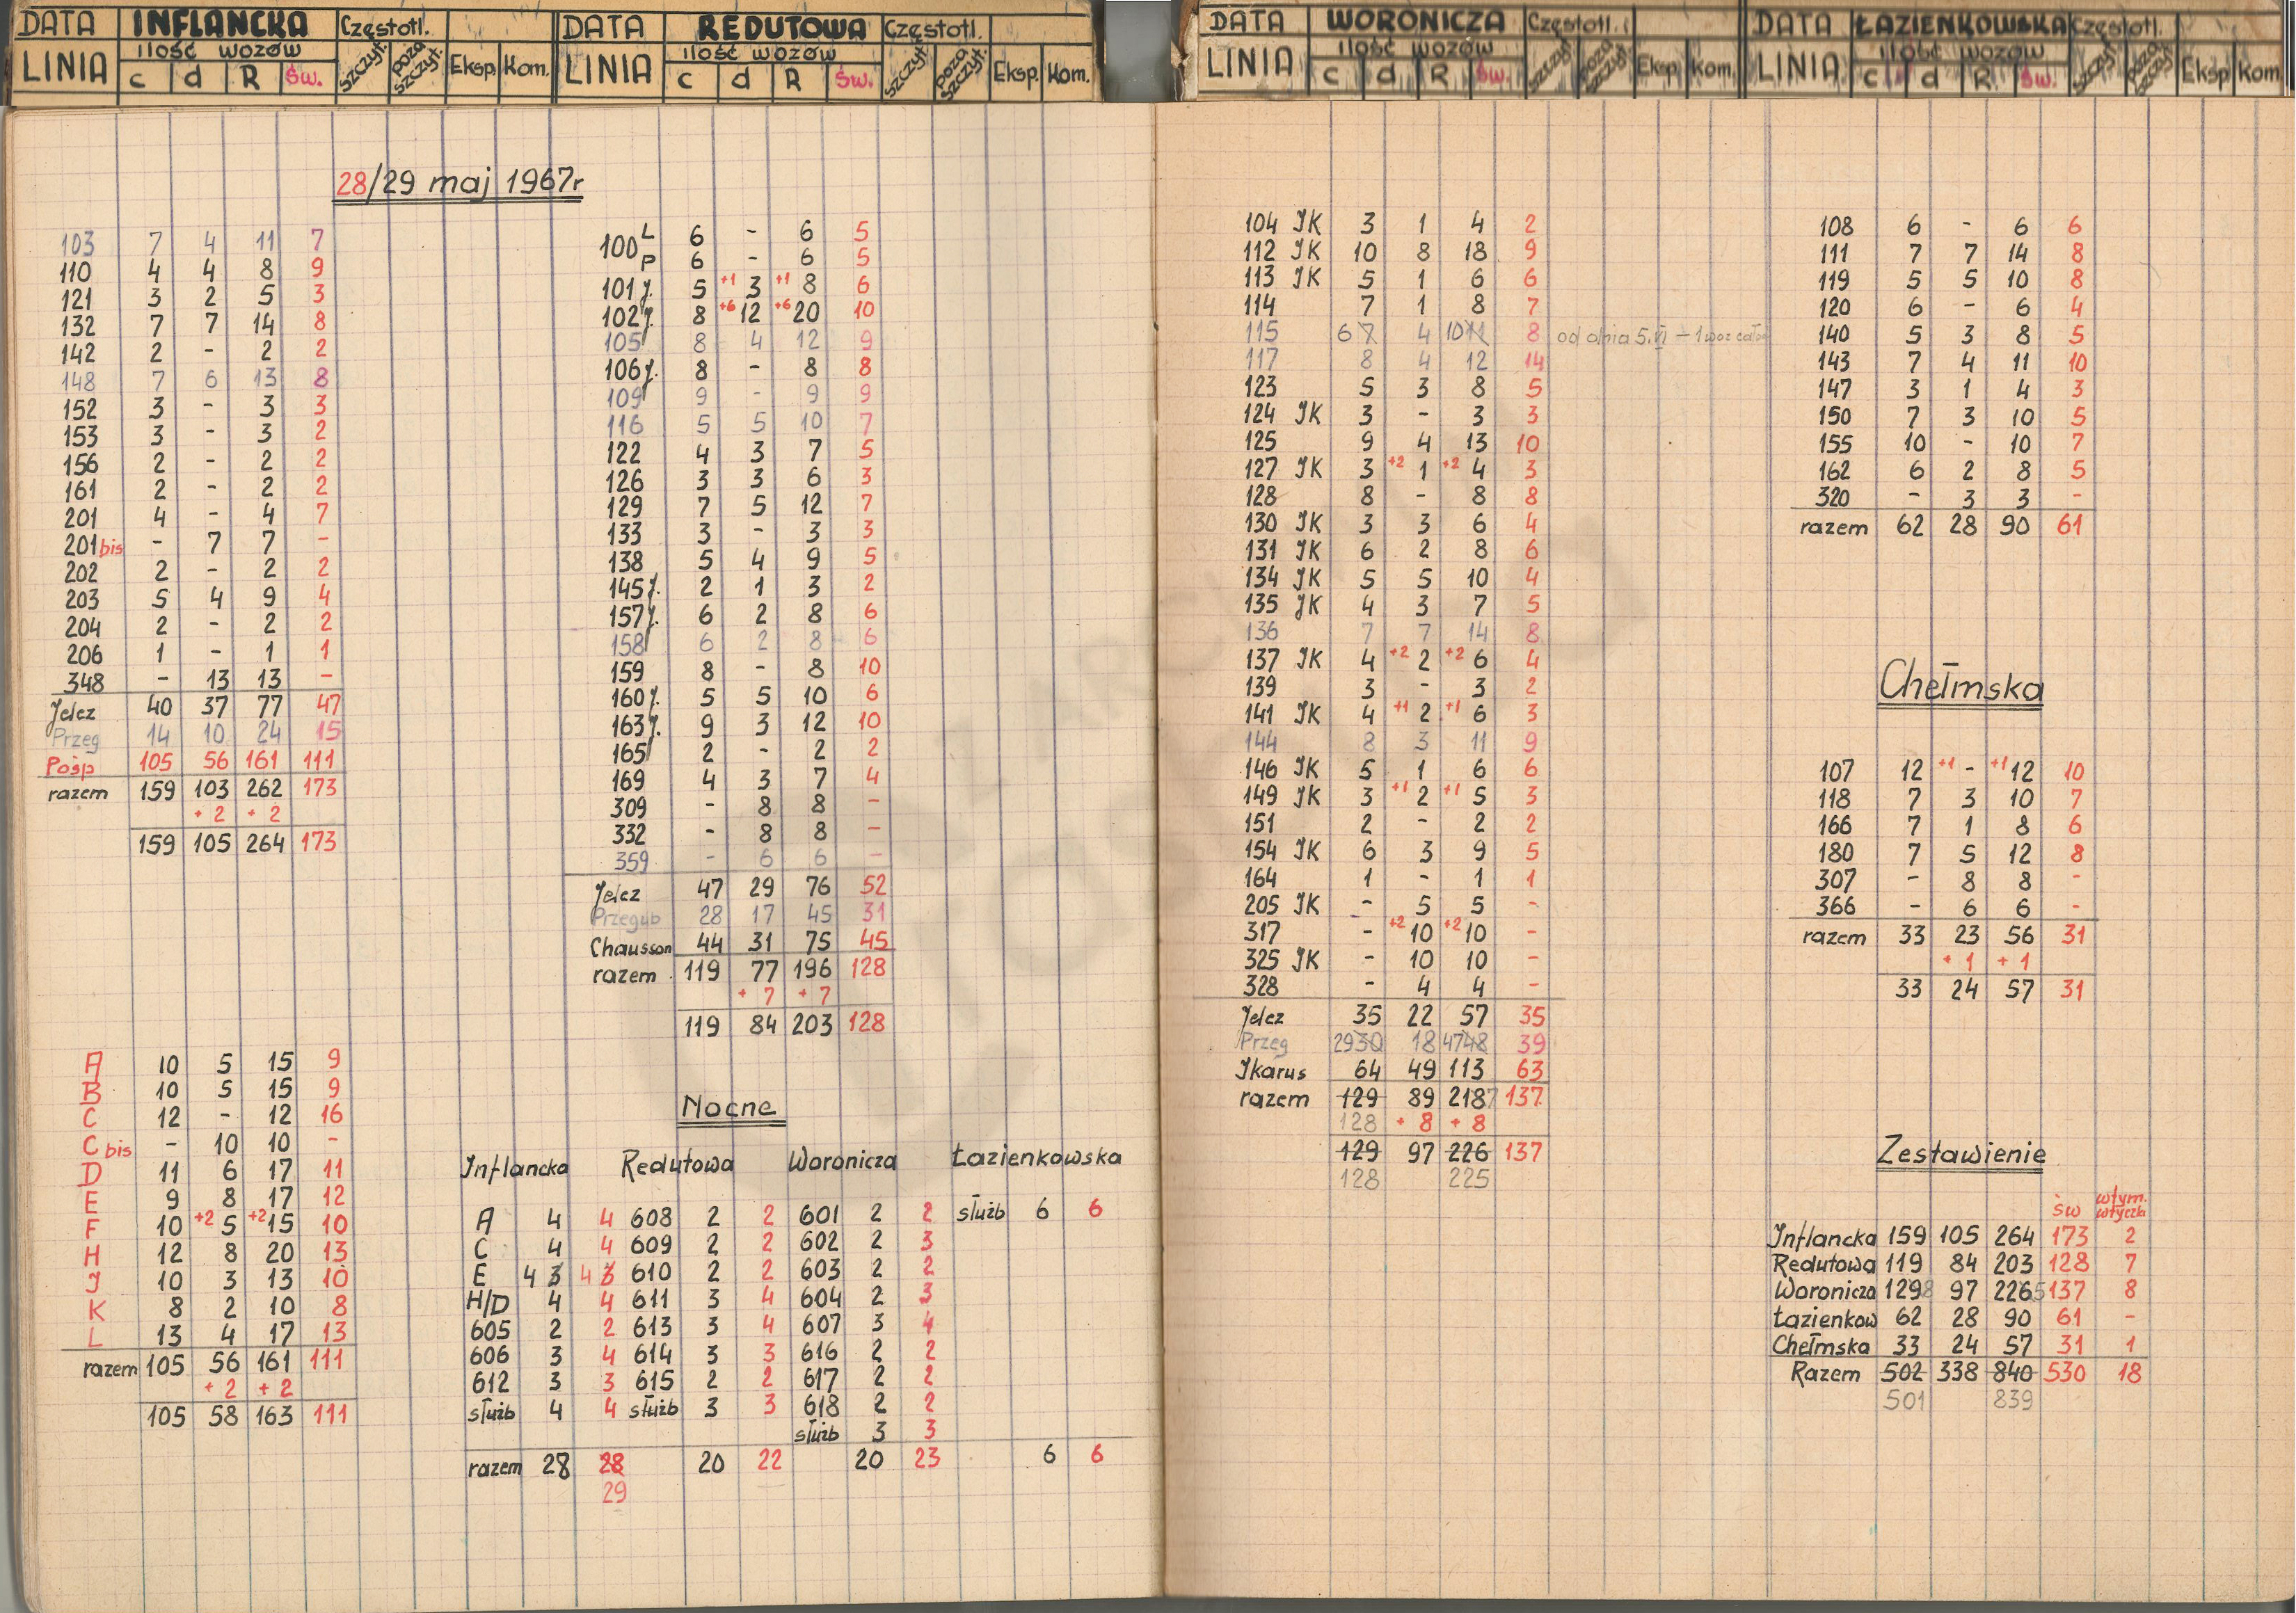 DATA INFLANCKA Częstotl.
LINIA ilość wozów szczyt. poza szczyt. Eksp. Kom.
c d R św.
28/29 maj 1967r
103 7 4 11 7
110 4 4 8 9
121 3 2 5 3
132 7 7 14 8
142 2 - 2 2
148 7 6 13 8
152 3 - 3 3
153 3 - 3 2
156 2 - 2 2
161 2 - 2 2
201 4 - 4 7
201 bis - 7 7 -
202 2 - 2 2
203 5 4 9 4
204 2 - 2 2
206 1 - 1 1
348 - 13 13 -
Jelcz 40 37 77 47
Przeg 14 10 24 15
Pośp 105 56 161 111
razem 159 103 262 173
+2 +2
159 105 264 173
A 10 5 15 9
B 10 5 15 9
C 12 - 12 16
C bis - 10 10 -
D 11 6 17 11
E 9 8 17 12
F 10 +2 5 +2 15 10
H 12 8 20 13
J 10 3 13 10
K 8 2 10 8
L 13 4 17 13
razem 105 56 161 111
+2 +2
105 58 163 111
DATA REDUTOWA Częstotl.
LINIA ilość wozów szczyt. poza szczyt. Eksp. Kom.
c d R św.
100 L 6 - 6 5
P 6 - 6 5
101 j. 5 +1 3 +1 8 6
102 j. 8 +6 12 +6 20 10
105 8 4 12 9
106 j. 8 - 8 8
109 9 - 9 9
116 5 5 10 7
122 4 3 7 5
126 3 3 6 3
129 7 5 12 7
133 3 - 3 3
138 5 4 9 5
145 j. 2 1 3 2
157 j. 6 2 8 6
158 6 2 8 6
159 8 - 8 10
160 j. 5 5 10 6
163 j. 9 3 12 10
165 2 - 2 2
169 4 3 7 4
309 - 8 8 -
332 - 8 8 -
359 - 6 6 -
Jelcz 47 29 76 52
Przegub 28 17 45 31
Chausson 44 31 75 45
razem 119 77 196 128
+7 +7
119 84 203 128
Nocne
Inflancka Redutowa Woronicza Łazienkowska
A 4 4 608 2 2 601 2 2 służb 6 6
C 4 4 609 2 2 602 2 3
E 4 3 4 3 610 2 2 603 2 2
H/D 4 4 611 3 4 604 2 3
605 2 2 613 3 4 607 3 4
606 3 4 614 3 3 616 2 2
612 3 3 615 2 2 617 2 2
służb 4 4 służb 3 3 618 2 2
służb 3 3
razem 28 28 20 22 20 23 6 6
29
DATA WORONICZA Częstotl.
LINIA ilość wozów szczyt. poza szczyt. Eksp. Kom.
c d R św.
104 JK 3 1 4 2
112 JK 10 8 18 9
113 JK 5 1 6 6
114 7 1 8 7
115 6 7 4 10 11 8 od dnia 5.VI – 1 woz
117 8 4 12 14
123 5 3 8 5
124 JK 3 - 3 3
125 9 4 13 10
127 JK 3 +2 1 +2 4 3
128 8 - 8 8
130 JK 3 3 6 4
131 JK 6 2 8 6
134 JK 5 5 10 4
135 JK 4 3 7 5
136 7 7 14 8
137 JK 4 +2 2 +2 6 4
139 3 - 3 2
141 JK 4 +1 2 +1 6 3
144 8 3 11 9
146 JK 5 1 6 6
149 JK 3 +1 2 +1 5 3
151 2 - 2 2
154 JK 6 3 9 5
164 1 - 1 1
205 JK - 5 5 -
317 - +2 10 +2 10 -
325 JK - 10 10 -
328 - 4 4 -
Jelcz 35 22 57 35
Przeg 29 30 18 47 48 39
Ikarus 64 49 113 63
razem 129 89 218 7 137
128 +8 +8
129 97 226 137
128 225
DATA ŁAZIENKOWSKA Częstotl.
LINIA ilość wozów szczyt. poza szczyt. Eksp Kom
c d R św.
108 6 - 6 6
111 7 7 14 8
119 5 5 10 8
120 6 - 6 4
140 5 3 8 5
143 7 4 11 10
147 3 1 4 3
150 7 3 10 5
155 10 - 10 7
162 6 2 8 5
320 - 3 3 -
razem 62 28 90 61
Chełmska
107 12 +1 - +1 12 10
118 7 3 10 7
166 7 1 8 6
180 7 5 12 8
307 - 8 8 -
366 - 6 6 -
razem 33 23 56 31
+1 +1
33 24 57 31
Zestawienie
św w tym. wtyczki
Inflancka 159 105 264 173 2
Redutowa 119 84 203 128 7
Woronicza 129 8 97 226 5 137 8
Łazienkow 62 28 90 61 -
Chełmska 33 24 57 31 1
Razem 502 338 840 530 18
501 839